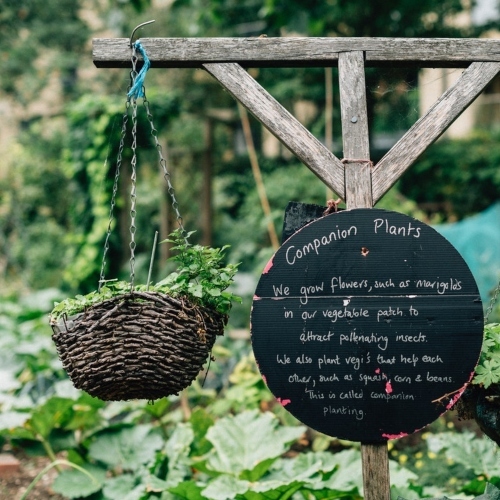 Companion Plants
We grow flowers, such as marigolds
in our vegetable patch to
attract pollenating insects.
We also plant vegi's that help each
other, such as squash, corn & beans
This is called companion
planting